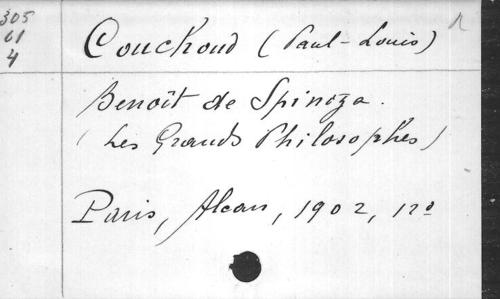 305
61
4
Couchoud (Paul-Louis)
Benoît de Spinoza.
(Les Grands Philosophes)
Paris, Alcan, 1902, 12º